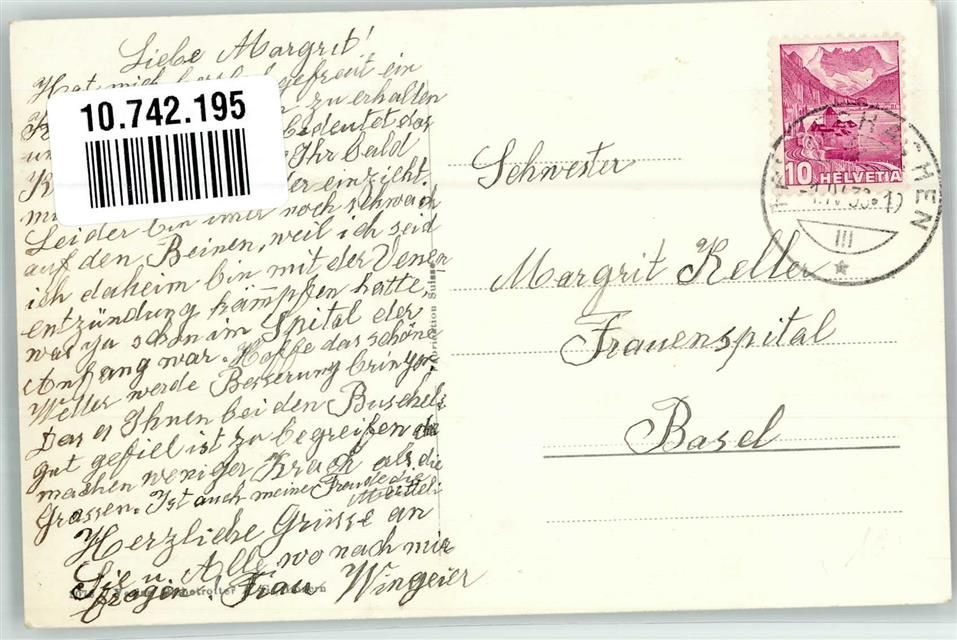 Liebe Margrit!
Hat mich gefreut ein
zu erhalten
bedeutet das
Ihr bald
einzieht.
Leider bin imer noch schwach
auf den Beinen, weil ich seid
ich daheim bin mit der Venen
entzündung kämpfen hatte,
war ja schon im Spital der
Anfang war. Hoffe das schöne
Wetter werde Besserung bringen.
Das es Ihnen bei den Buschels
gut gefiel ist zu begreifen die
machen weniger Krach als die
Grossen. Ist auch meine Freude die
Herzliche Grüsse an
Sie u. Alle, wo nach mir
fragen. Frau Wingeier
10.742.195
Schwester
Margrit Keller
Frauenspital
Basel
10 HELVETIA
III